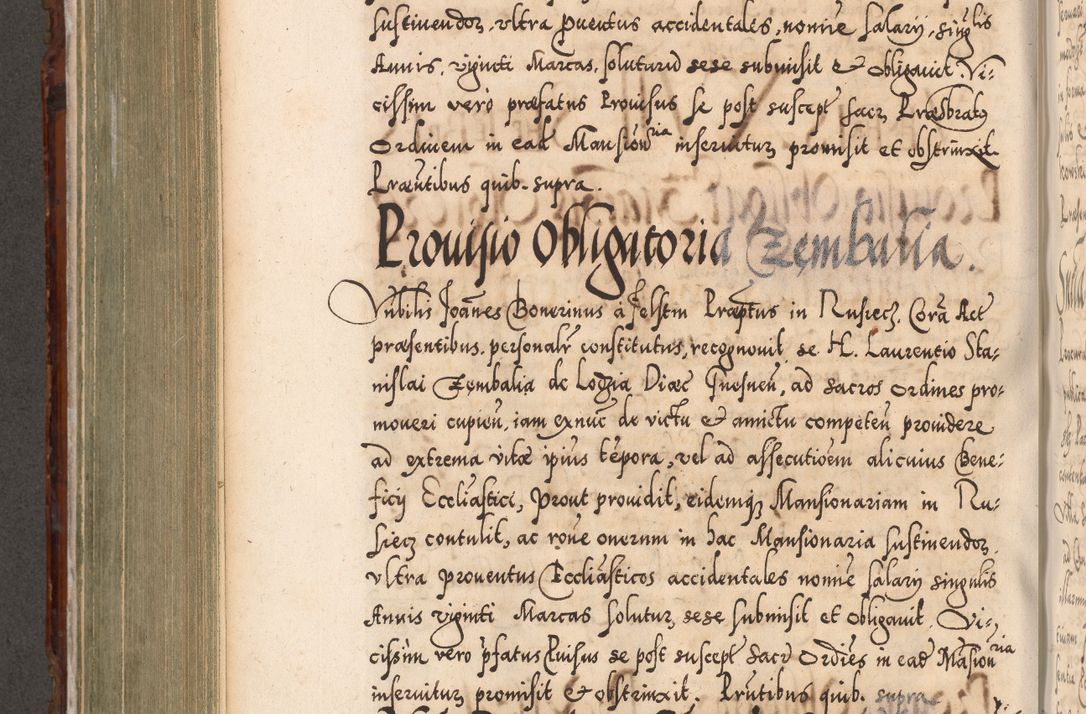 sustinendoꝝ, vltra pueutus accidentales, nomīe salarÿ, singlis
Annis, viginti Marcas, soluturū sese submisit et obligauit. Vi-
cissim vero præfatus Prouisus se post suscept Sacꝝ Præsbratꝯ
Ordinem in eadē Mansionria inseruiturꝝ promisit et obstrinxit.
Præntibus quib. supra.
Prouisio Obligatoria Zembalia.
Nobilis Joānes Bonerinus a Felstin Præptus in Rusiecz. Corā Act
præsentibus. personalr constitutus, recognouit, se H. Laurentio Sta-
nislai Zembalia de Logzia Diœc Gnesnen, ad sacros ordines pro-
moueri cupien, iam exnūc de victu et amictu competen prouidere
ad extrema vitæ ipius tēpora, vel ad assecutioēm alicuius Bene-
ficÿ Ecclīastici, prout prouidit, eidemqꝫ Mansionariam in Ru-
siecz contulit, ac rōne onerum in hac Mansionaria sustinendoꝝ.
vltra prouentus Ecclīasticos accidentales nomīe salarÿ singulis
Annis viginti Marcas soluturꝝ sese submisit et obligauit. Vi-
cissim vero pfatus Puisus se post suscept Sacr Ordīes in eadē Māsionria
inseruiturꝝ promisit et obstrinxit. Prntibus quib. supra